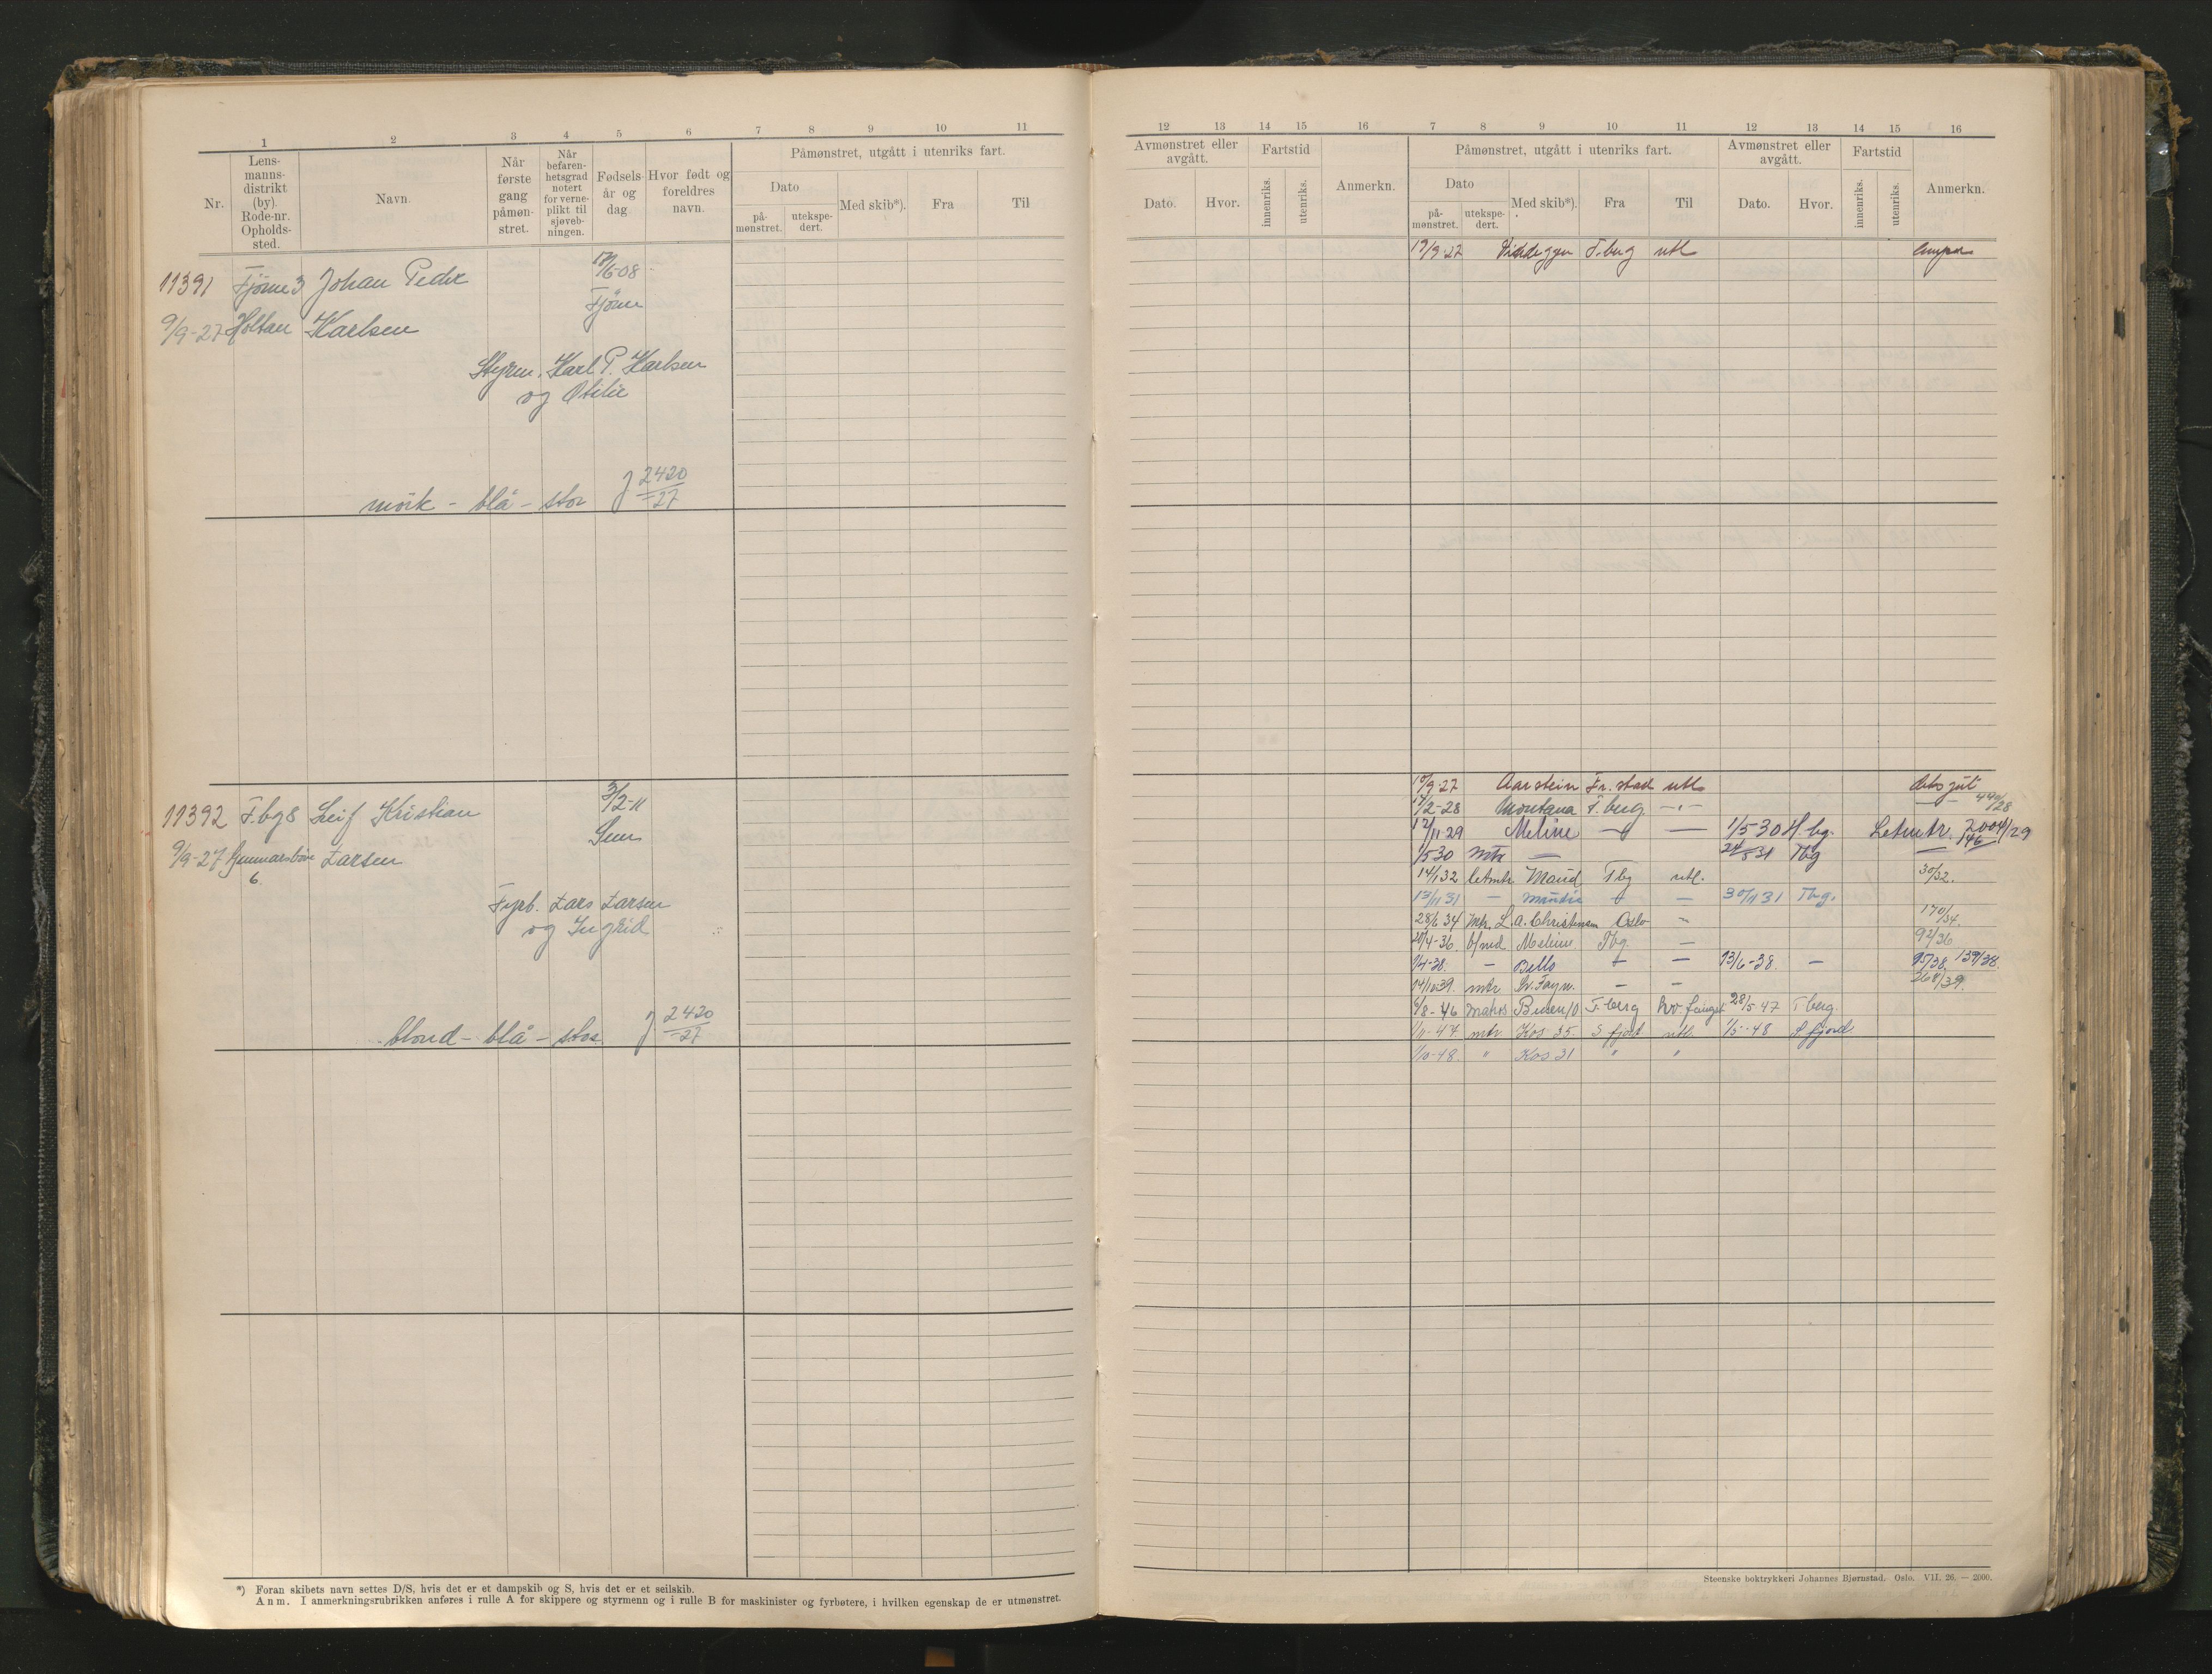 1 2 3 4 5 6 7 8 9 10 11
Nr.
Lens-
manns-
distrikt
(by).
Rode-nr.
Opholds-
sted.
Navn.
Når
første
gang
påmøn-
stret.
Når
befaren-
hetsgrad
notert
for verne-
plikt til
sjøveb-
ningen.
Fødsels-
år og
dag
Hvor født og
foreldres
navn.
Påmønstret, utgått i utenriks fart.
Dato
på-
mønstret.
utekspe-
dert.
Med skib*).
Fra
Til
11391 Tjøme 3 Johan Peder 17/6-08
Tjøme
9/9-27 Holtan Karlsen
Styrm. Karl P. Karlsen
og Otilie
mörk - blå - stor J 2420/-27
11392 T.bg 8 Leif Kristian 3/2-11
Sem
9/9-27 Gunnarsbøv. Larsen
6
Fyrb. Lars Larsen
og Ingrid
blond - blå - stor J 2420/-27
*) Foran skibets navn settes D/S, hvis det er et dampskib og S, hvis det er et seilskib.
Anm. I anmerkningsrubrikken anføres i rulle A for skippere og styrmenn og i rulle B for maskinister og fyrbøtere, i hvilken egenskap de er utmønstret.
12 13 14 15 16 7 8 9 10 11 12 13 14 15 16
Avmønstret eller
avgått.
Dato.
Hvor.
Fartstid
innenriks.
utenriks.
Anmerkn.
Påmønstret, utgått i utenriks fart.
Dato
på-
mønstret.
utekspe-
dert.
Med skib*).
Fra
Til
Avmønstret eller
avgått.
Dato.
Hvor.
Fartstid
innenriks.
utenriks.
Anmerkn.
19/9-27 T.berg utl
10/9-27 Aarstein Fr.stad utl. dæksgut
14/2-28 Montana T.berg -"- — 490/28
12/11-29 Meline — — 1/5 30 H.bg. Letmtr. 2004/29
1/5 30 mtr — 24/5 31 Tbg — 146
14/1 32 letmtr Maud Tbg utl. 30/32.
13/11 31 — — 30/11 31 Tbg.
28/6 34 Mtr. L. A. Christensen Oslo 170/34.
20/4-36. Meline. Tbg. — 92/36
1/4-38. — — — 13/6-38. — 95/38. 139/38.
14/10 39. mtr Sv. Foyn. — — 368/39.
6/8-46 Matros T.berg hv.fangst 28/5 47 T.berg.
1/11-47 mtr Kos 35 S.fjord utl. 1/5-48 S.fjord.
1/10-48. " Kos 31 " "
Steenske boktrykkeri Johannes Bjørnstad. Oslo. VII. 26. — 2000.